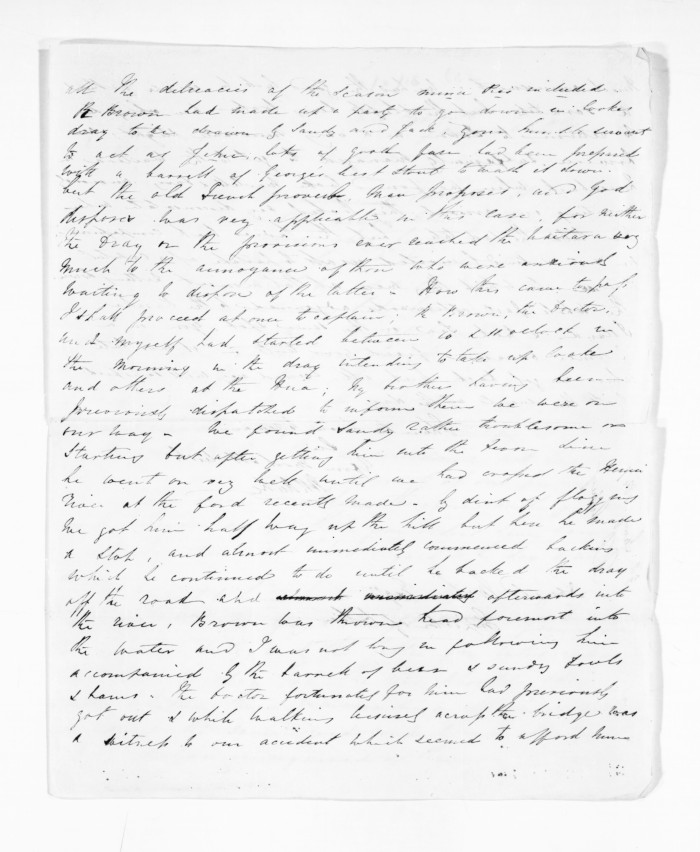 all the delicacies of the season minus Pies included.
R Brown had made up a party to go down in Cookes
dray to be drawn by Sandy and Jack, your humble servant
to act as Jehu. lots of good fare had been prepared
with a barrell of Georges best Stout to wash it down.
but the old French proverb Man proposes, and God
disposes was very applicable in this case, for neither
the Dray or the provisions ever reached the Waitara very
much to the annoyance of those who were anxiously
waiting to dispose of the latter - How this came to pass
I shall proceed at once to explain; R Brown, the Doctor,
and myself had started between 10 & 11 oclock in
the morning in the dray intending to take up Cooke
and others at the Hua; My brother having been
previously dispatched to inform them we were on
our way - We found Sandy rather troublesome on
starting but after getting him into the Devon line
he went on very well until we had crossed the Henui
River at the ford recently made - By dint of flogging
we got him half way up the hill but here he made
a stop, and almost immediately commenced backing
which he continued to do until he backed the dray
off the road and almost immediately afterwards into
the river, Brown was thrown head foremost into
the water and I was not long in following him
accompanied by the barrell of beer & sundry fowls
& hams - The Doctor fortunately for him had previously
got out & while walking leisurely across the bridge was
a witness to our accident which seemed to afford him